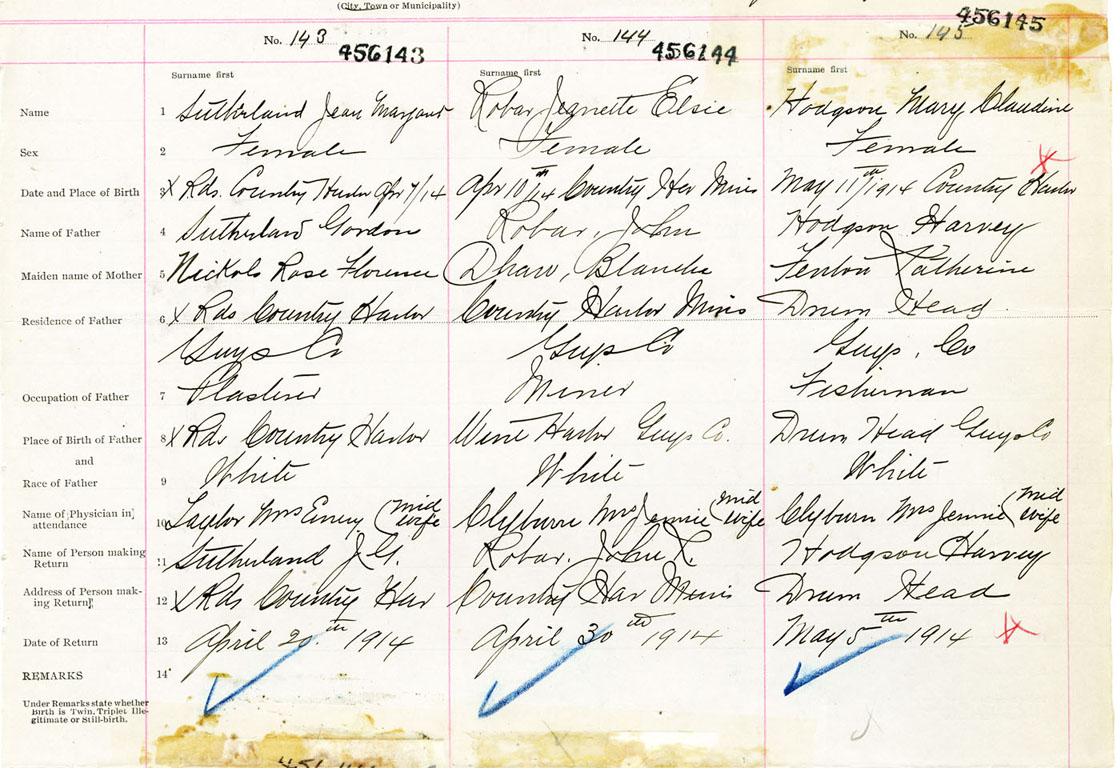 (City, Town or Municipality)
No. 143 456143 No. 144 456144 No. 145 456145
Surname first Surname first Surname first
Name 1 Sutherland Jean Margaret Robar Jeanette Elsie Hodgson Mary Claudine
Sex 2 Female Female Female
Date and Place of Birth 3 X Rds. Country Harbor Apr 7/14 Apr 10th/14 Country Har Mines May 11th/1914 Country Harbor X
Name of Father 4 Sutherland Gordon Robar, John Hodgson Harvey
Maiden name of Mother 5 Nickols Rose Florence Blanche Fenton Katherine
Residence of Father 6 X Rds Country Harbor Country Harbor Mines Drum Head
Guys Co Guys Co Guys. Co
Occupation of Father 7 Plasterer Miner Fisherman
Place of Birth of Father 8 X Rds Country Harbor Wine Harbor Guys Co. Drum Head Guys Co
and
Race of Father 9 White White White
Name of Physician in attendance 10 Taylor Mrs Emery (mid wife Clyburn Mrs Jennie (mid wife Clyburn Mrs Jennie (mid wife
Name of Person making Return 11 Sutherland J.G. Robar, John Hodgson Harvey
Address of Person making Return 12 X Rds Country Har Country Har Mines Drum Head
Date of Return 13 April 20th 1914 April 30th 1914 May 5th 1914 X
REMARKS 14
Under Remarks state whether
Birth is Twin, Triplet Ille-
gitimate or Still-birth.